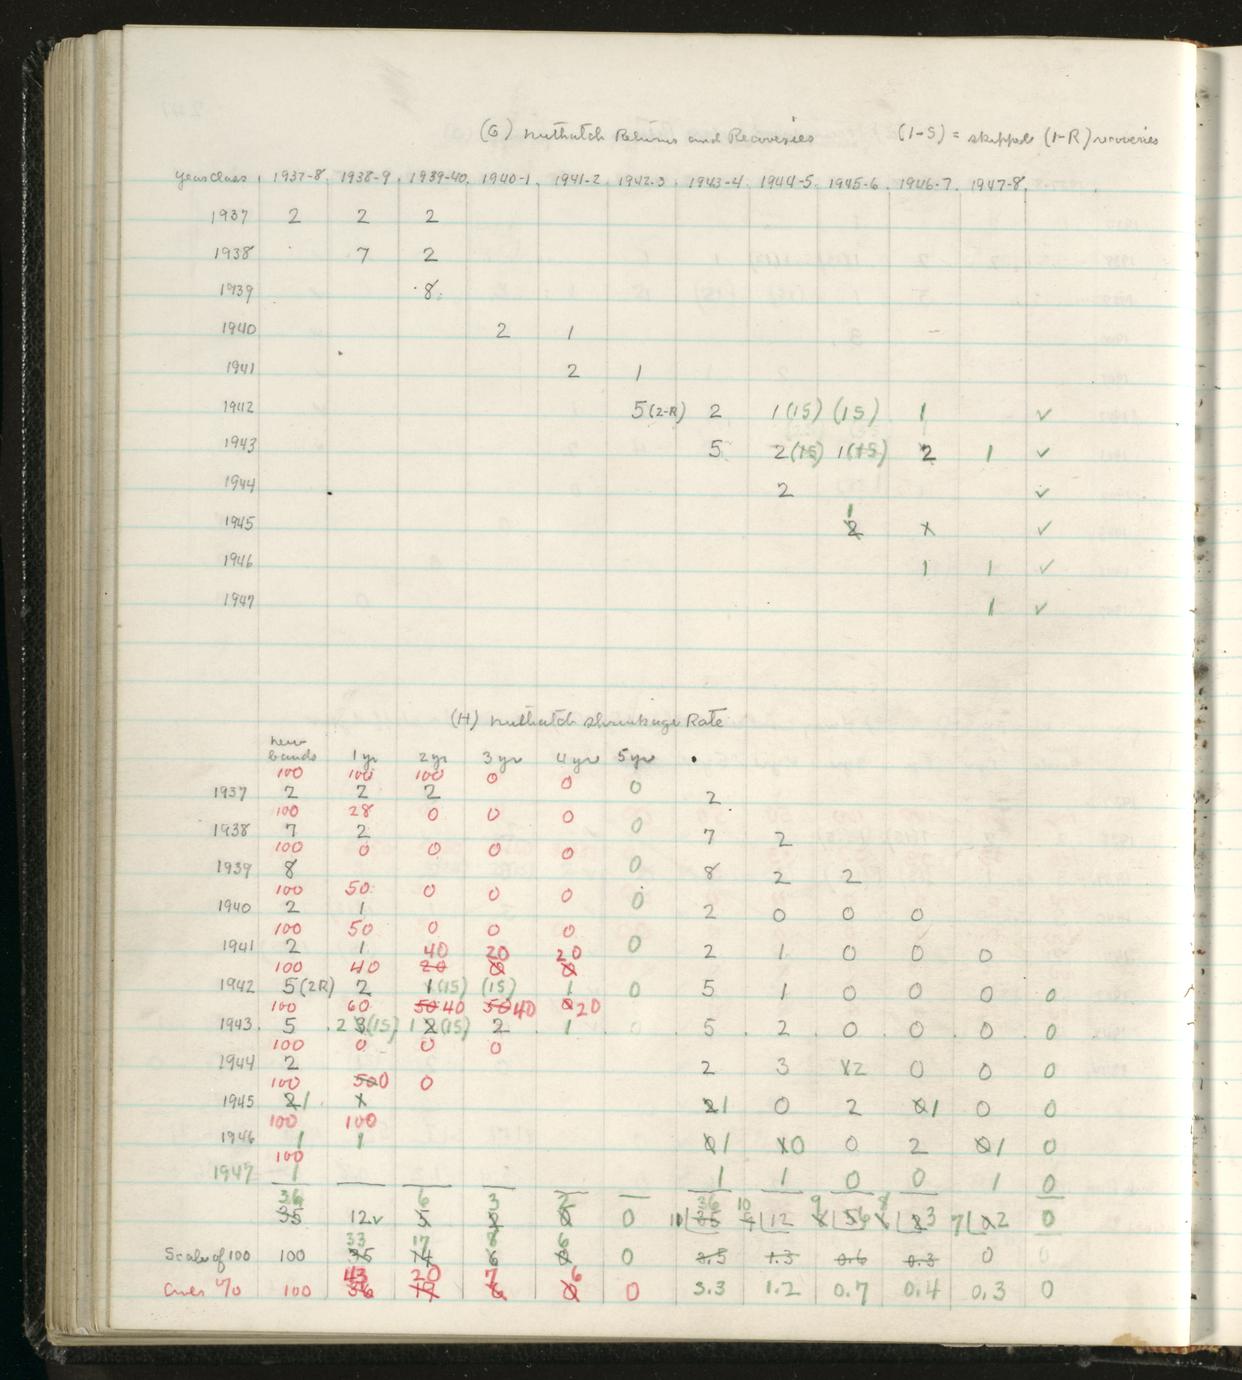 (G) Nuthatch Returns and Recoveries (1-S) = skipped (1-R) recoveries
year class 1937-8 1938-9 1939-40 1940-1 1941-2 1942-3 1943-4 1944-5 1945-6 1946-7 1947-8
1937 2 2 2
1938 7 2
1939 8
1940 2 1
1941 2 1
1942 5(2-R) 2 1(1S) (1S) 1 ✓
1943 5 2(1S) 1(1S) 2 1 ✓
1944 2 ✓
1
1945 2 x ✓
1946 1 1 ✓
1947 1 ✓
(H) Nuthatch Shrinkage Rate
new bands 1 yr 2 yr 3 yr 4 yr 5 yr
100 100 100 0 0 0
1937 2 2 2 2
100 28 0 0 0 0
1938 7 2 7 2
100 0 0 0 0 0
1939 8 8 2 2
100 50 0 0 0 0
1940 2 1 2 0 0 0
100 50 0 0 0 0
1941 2 1 2 1 0 0 0
40 20 20
100 40 20 0 0
1942 5(2R) 2 1(1S) (1S) 1 0 5 1 0 0 0 0
100 60 50 40 50 40 0 20
1943 5 2 3(1S) 1 2(1S) 2 1 0 5 2 0 0 0 0
100 0 0 0
1944 2 2 3 x2 0 0 0
100 50 0 0
1945 2 1 x 2 1 0 2 0 1 0 0
100 100
1946 1 1 0 1 x0 0 2 0 1 0
100
1947 1 1 1 0 0 1 0
36 6 3 2 36 10 9 8
35 12✓ 5 0 11 35 12 5 6 3 7 2 0
33 17 8 6
Scale of 100 100 35 14 6 0 0 3.5 1.3 0.6 0.3 0 0
43 20 7 6
Aver % 100 36 6 0 0 3.3 1.2 0.7 0.4 0.3 0